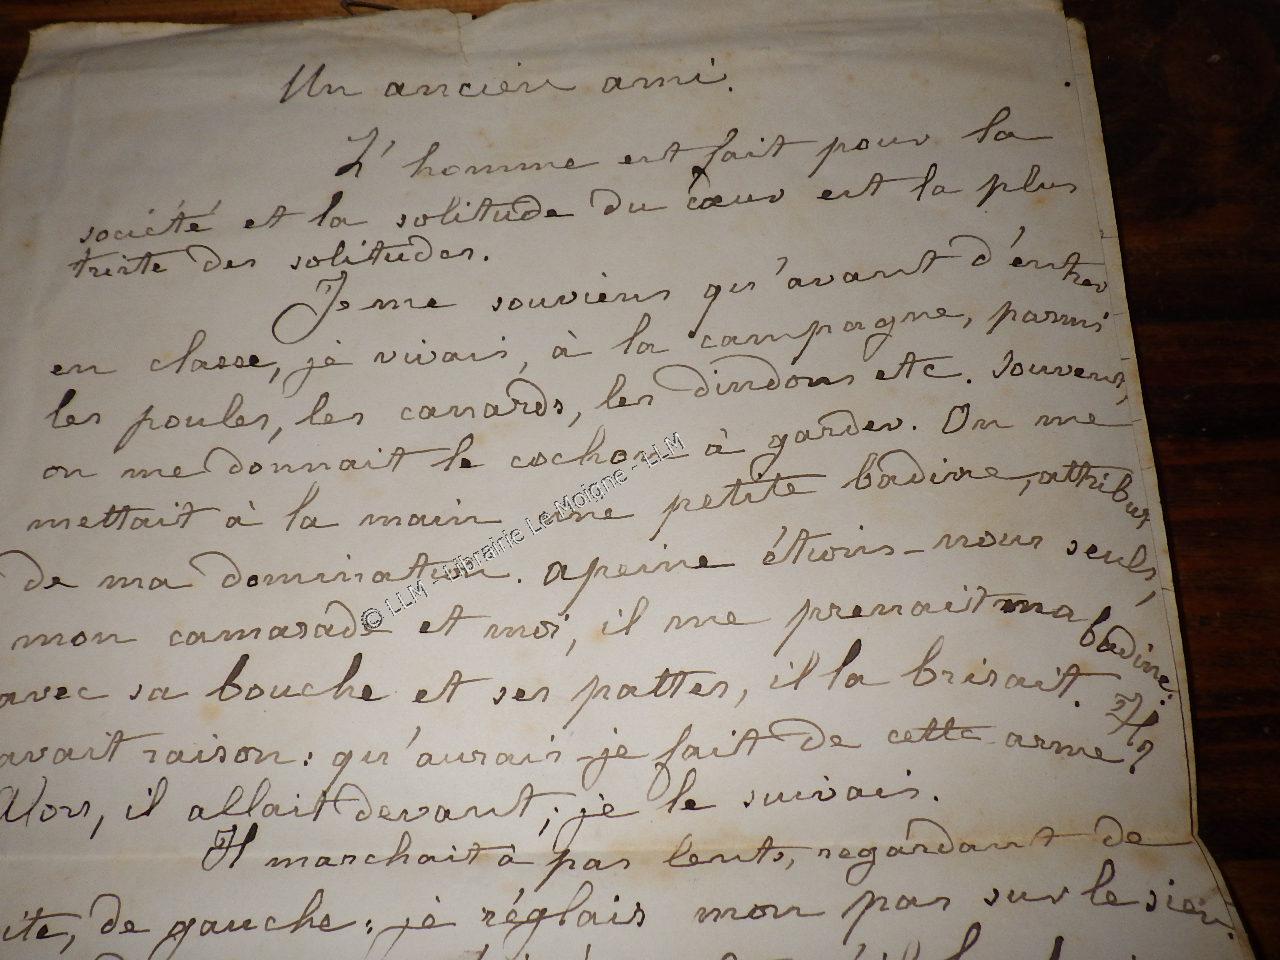 Un ancien ami.
L'homme est fait pour la
société et la solitude du cœur est la plus
triste des solitudes.
Je me souviens qu'avant d'entrer
en classe, je vivais, à la campagne, parmi
les poules, les canards, les dindons etc. Souvent,
on me donnait le cochon à garder. On me
mettait à la main une petite badine, attribut
de ma domination. apeine étions-nous seuls,
mon camarade et moi, il me prenait ma badine:
avec sa bouche et ses pattes, il la brisait. Il
avait raison: qu'aurais-je fait de cette arme?
Alors, il allait devant; je le suivais.
Il marchait à pas lents, regardant de
ite, de gauche: je réglais mon pas sur le sien.
© LLM - Librairie Le Moigne - LLM